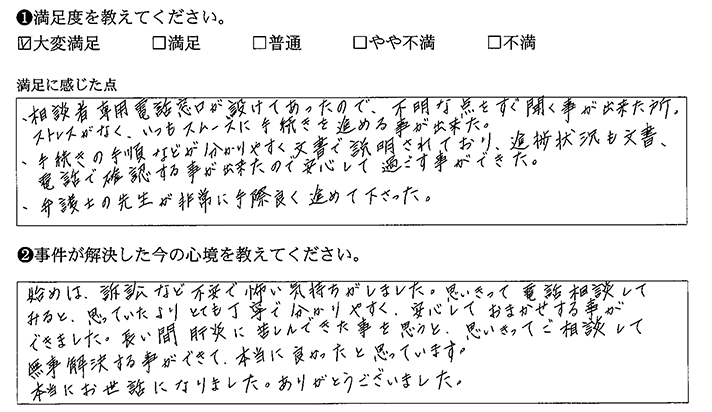 ❶満足度を教えてください。
☑大変満足 □満足 □普通 □やや不満 □不満
満足に感じた点
・相談者専用電話窓口が設けてあったので、不明な点をすぐ聞く事が出来た所。
ストレスがなく、いつもスムーズに手続きを進める事が出来た。
・手続きの手順などが分かりやすく文書で説明されており、進捗状況も文書、
電話で確認する事が出来たので安心して過ごす事ができた。
・弁護士の先生が非常に手際良く進めて下さった。
❷事件が解決した今の心境を教えてください。
始めは、訴訟など不安で怖い気持ちがしました。思いきって電話相談して
みると、思っていたよりとても丁寧で分かりやすく、安心しておまかせする事が
できました。長い間肝炎に苦しんできた事を思うと、思いきってご相談して
無事解決する事ができて、本当に良かったと思っています。
本当にお世話になりました。ありがとうございました。